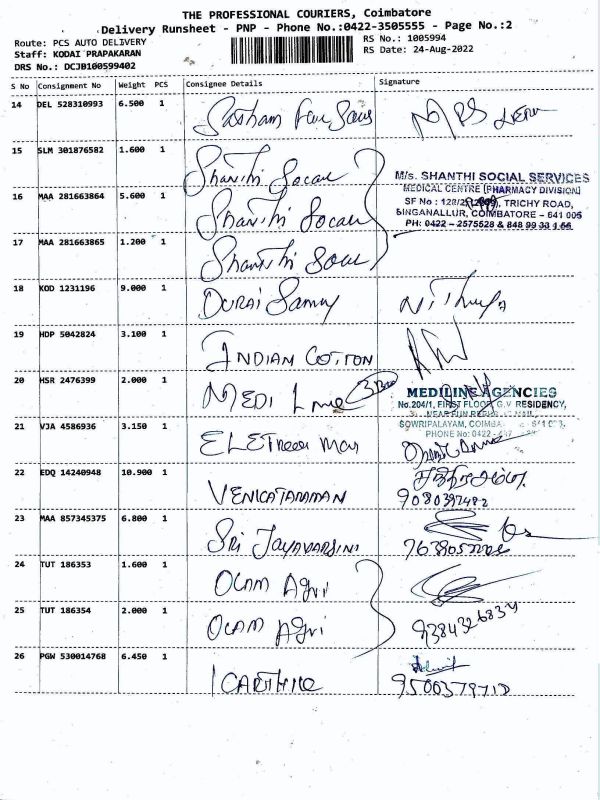 THE PROFESSIONAL COURIERS, Coimbatore
Delivery Runsheet - PNP - Phone No.:0422-3505555 - Page No.:2
Route: PCS AUTO DELIVERY
Staff: KODAI PRAPAKARAN
DRS No.: DCJB100599402
RS No.: 1005994
RS Date: 24-Aug-2022
S No Consignment No Weight PCS Consignee Details Signature
14 DEL 528310993 6.500 1
15 SLM 301876582 1.600 1 Shanthi Social
16 MAA 281663864 5.600 1 Shanthi Social
17 MAA 281663865 1.200 1 Shanthi Social
M/s. SHANTHI SOCIAL SERVICES
MEDICAL CENTRE (PHARMACY DIVISION)
SF No : TRICHY ROAD,
SINGANALLUR, COIMBATORE - 641 005
PH: 0422 - 2575628 & 848 99 33 1 66
18 KOD 1231196 9.000 1 DURAI Samy Nithya
19 HDP 5042824 3.100 1 INDIAN COTTON
20 HSR 2476399 2.000 1 MEDI Line
MEDILINE AGENCIES
No.204/1, FIRST FLOOR, G.V RESIDENCY,
SOWRIPALAYAM,
PHONE No: 0422 -
21 VJA 4586936 3.150 1
22 EDQ 14240948 10.900 1 VENKATARAMAN
9080397482
23 MAA 857345375 6.800 1 SRI JAYAVARSINI
24 TUT 186353 1.600 1 OLAM Agri
25 TUT 186354 2.000 1 OLAM Agri
9384326834
26 PGW 530014768 6.450 1 KARTHIKE
9500379710